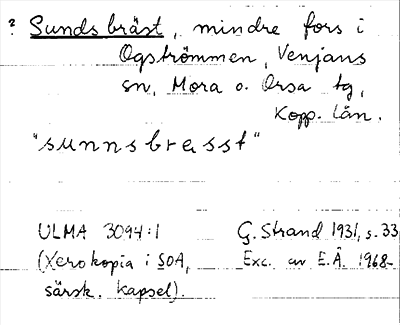 ? Sundsbräst, mindre fors i
Ogströmmen, Venjans
sn, Mora o. Orsa tg,
Kopp. län.
"sunnsbresst"
ULMA 3094:1 G. Strand 1931, s. 33
(Xerokopia i SOA, Exc. av E.Å. 1968-
särsk. kapsel).